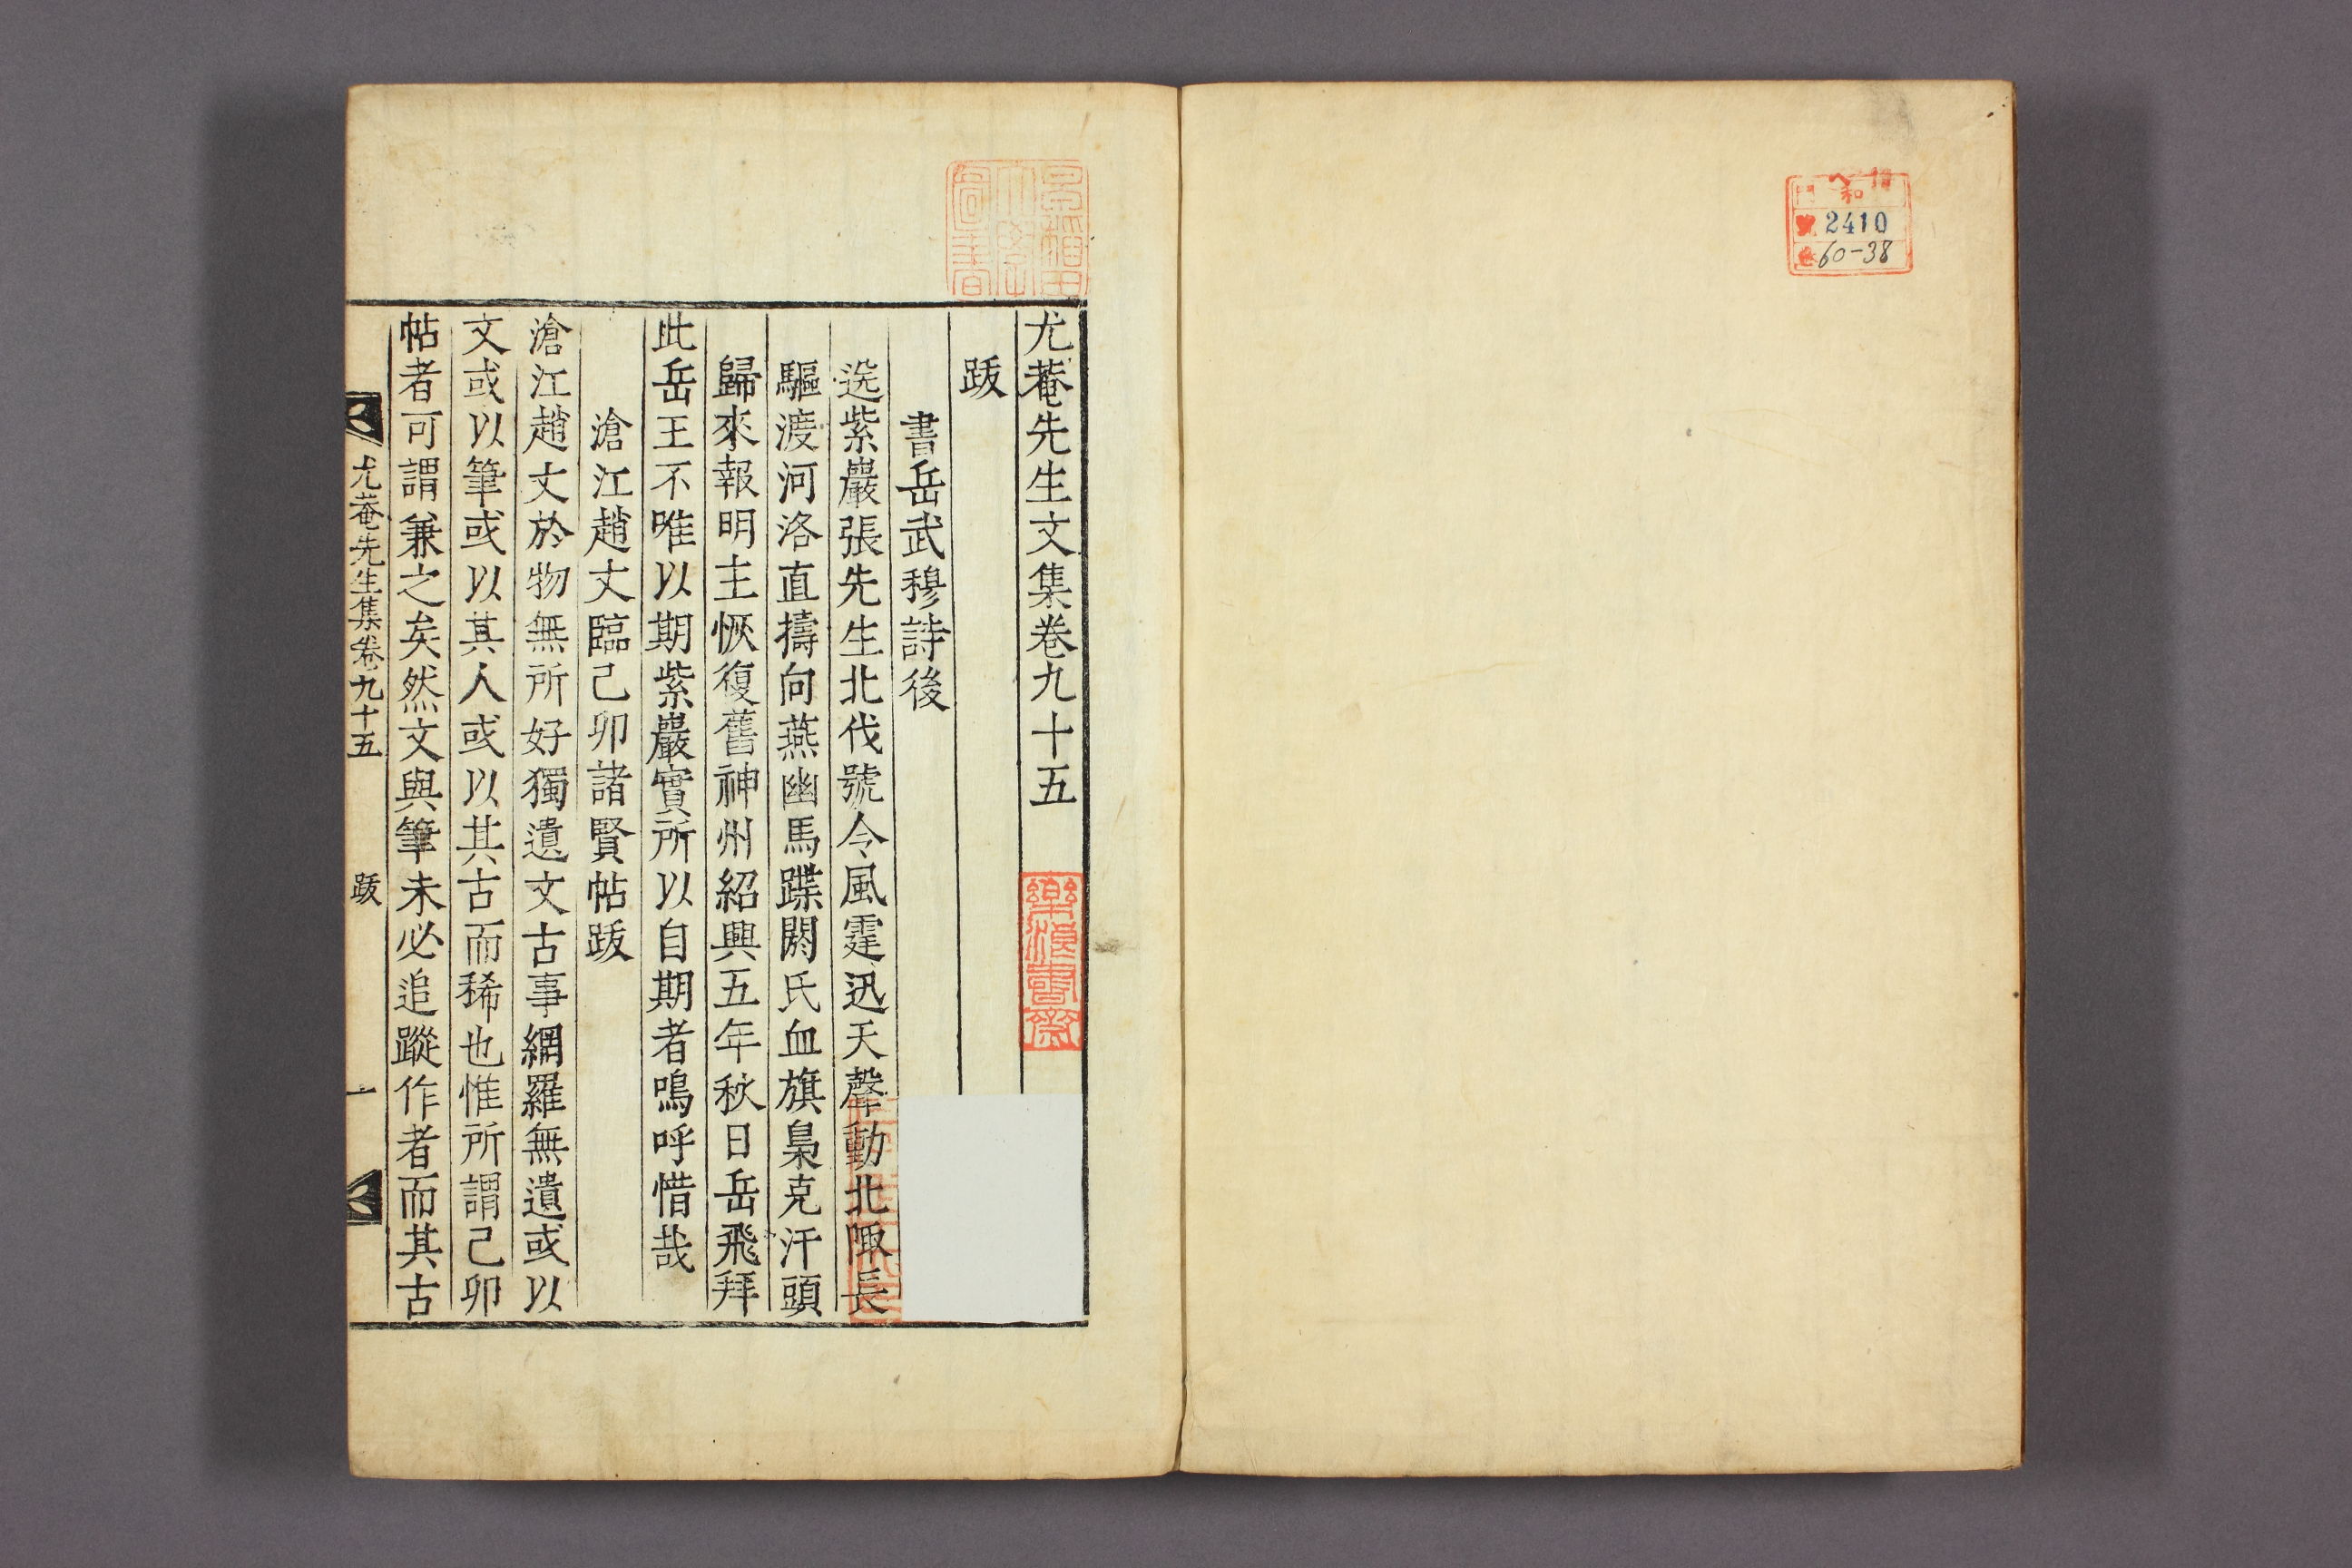 和
2410
60-38
早稲田
大學
圖書
尤菴先生文集卷九十五
跋
書岳武穆詩後
送紫巖張先生北伐號令風霆迅天聲動北陬長
驅渡河洛直擣向燕幽馬蹀閼氏血旗梟克汗頭
歸來報明主恢復舊神州紹興五年秋日岳飛拜
此岳王不唯以期紫巖實所以自期者嗚呼惜哉
滄江趙丈臨己卯諸賢帖跋
滄江趙丈於物無所好獨遺文古事網羅無遺或以
文或以筆或以其人或以其古而稀也惟所謂己卯
帖者可謂兼之矣然文與筆未必追蹤作者而其古
尤菴先生集卷九十五
跋
一